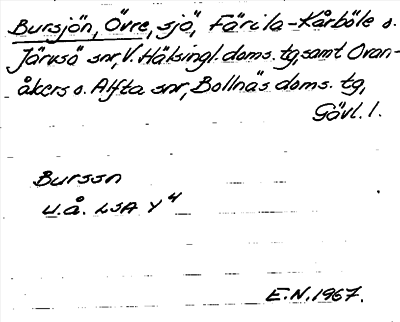 Bursjön, Övre, sjö, Färila-Kårböle o.
Järvsö snr, V. Hälsingl. doms. tg, samt Ovan-
åkers o. Alfta snr, Bollnäs doms. tg,
Gävl. l.
Burssn
u.å. LSA Y 4
E.N. 1967.